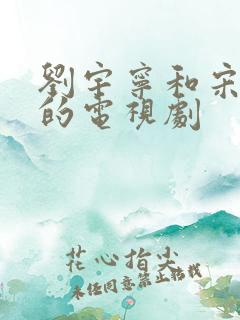 劉宇寧和宋
的電視劇
花心指尖
未经同意禁止转载